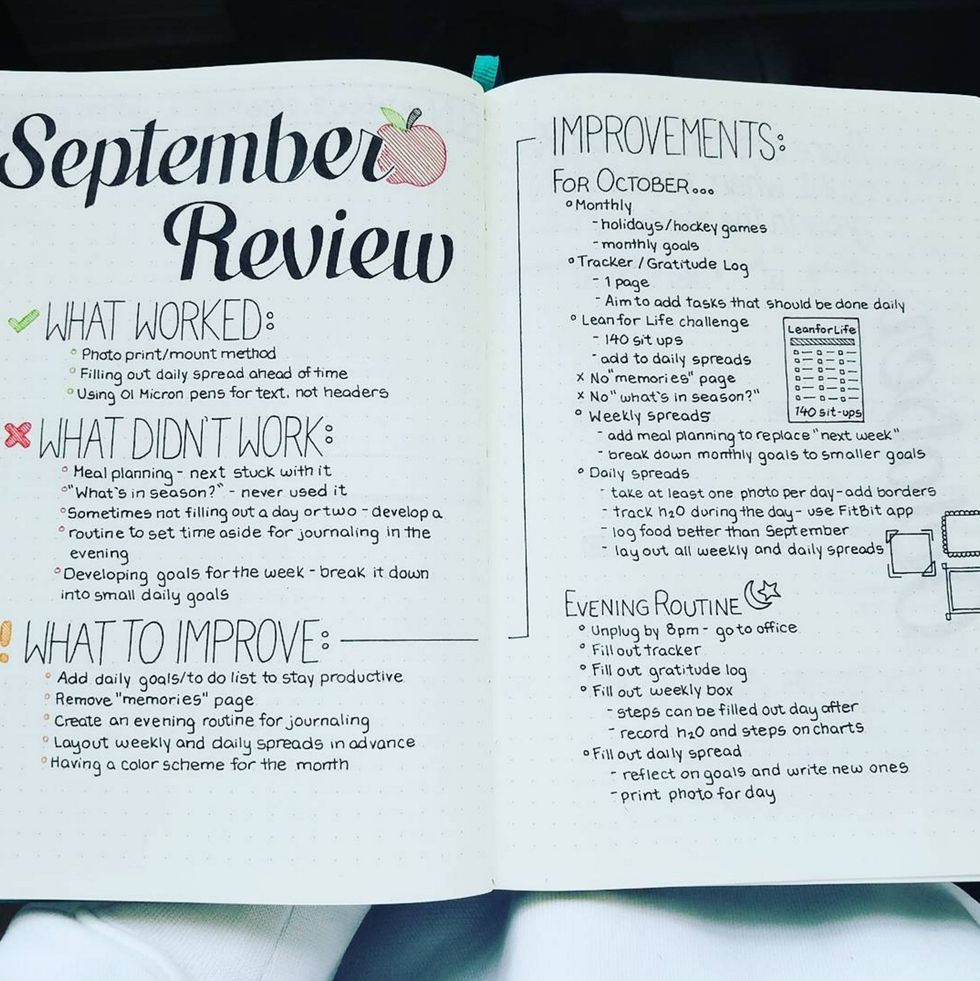 September
Review
WHAT WORKED:
Photo print/mount method
Filling out daily spread ahead of time
Using 01 Micron pens for text, not headers
WHAT DIDN'T WORK:
Meal planning - next stuck with it
"What's in season?" - never used it
Sometimes not filling out a day or two - develop a
routine to set time aside for journaling in the
evening
Developing goals for the week - break it down
into small daily goals
! WHAT TO IMPROVE:
Add daily goals/to do list to stay productive
Remove "memories" page
Create an evening routine for journaling
Layout weekly and daily spreads in advance
Having a color scheme for the month
IMPROVEMENTS:
FOR OCTOBER...
Monthly
- holidays/hockey games
- monthly goals
Tracker/Gratitude Log
- 1 page
- Aim to add tasks that should be done daily
Lean for Life challenge
- 140 sit ups
- add to daily spreads
x No "memories" page
x No "what's in season?"
Weekly spreads
- add meal planning to replace "next week"
- break down monthly goals to smaller goals
Daily spreads
- take at least one photo per day - add borders
- track h2o during the day - use FitBit app
- log food better than September
- lay out all weekly and daily spreads
Lean for Life
140 sit-ups
EVENING ROUTINE
Unplug by 8pm - go to office
Fill out tracker
Fill out gratitude log
Fill out weekly box
- steps can be filled out day after
- record h2o and steps on charts
Fill out daily spread
- reflect on goals and write new ones
- print photo for day